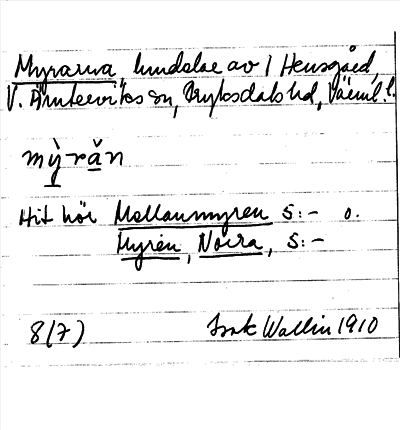 Myrarna, hundelar av 1 Hensgård,
V. Ämterviks sn, Fryksdals hd, Värml. l.
mỳ-răn
Hit hör Mellanmyren S:- o.
Myren, Norra, S:-
8(7) Isak Wallin 1910